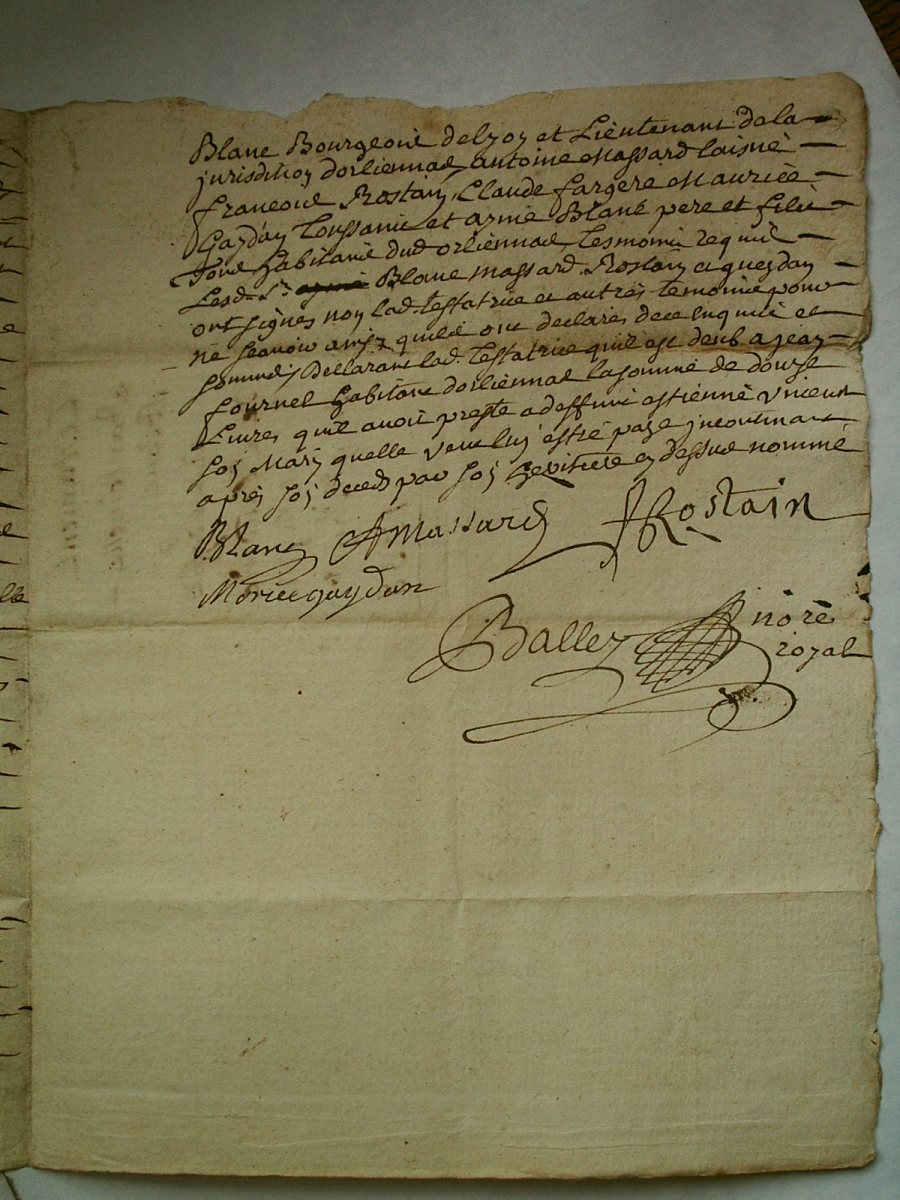 Blanc Bourgeois de lyoy et Lieutenant de la
jurisditioy dorliennas antoine Massard laisné
francois Rostaiy, Claude fargere Maurice
Gayday Toussainc et armé Blanc pere et filz
Tous habitans dud orliennas tesmoins requis
Lesd. Sr Blanc massard Rostaiy et gueyday
ont signes noy lad. testatrice et autres temoins pour
ne scavoir ainsy quilz ont declares de ce enquis et
sommes Declarant lad. Testatrice quil est deub a jeay
fournel habitant dorliennas la somme de douze
Livres quil avoit preste a deffunt estienne
soy Mary quelle veut luy estre paye incontinant
apres soy deces par soy heritiere cy dessus nommé
Blanc AMassard JRostain
Morice gaydan
Balley nore
royal